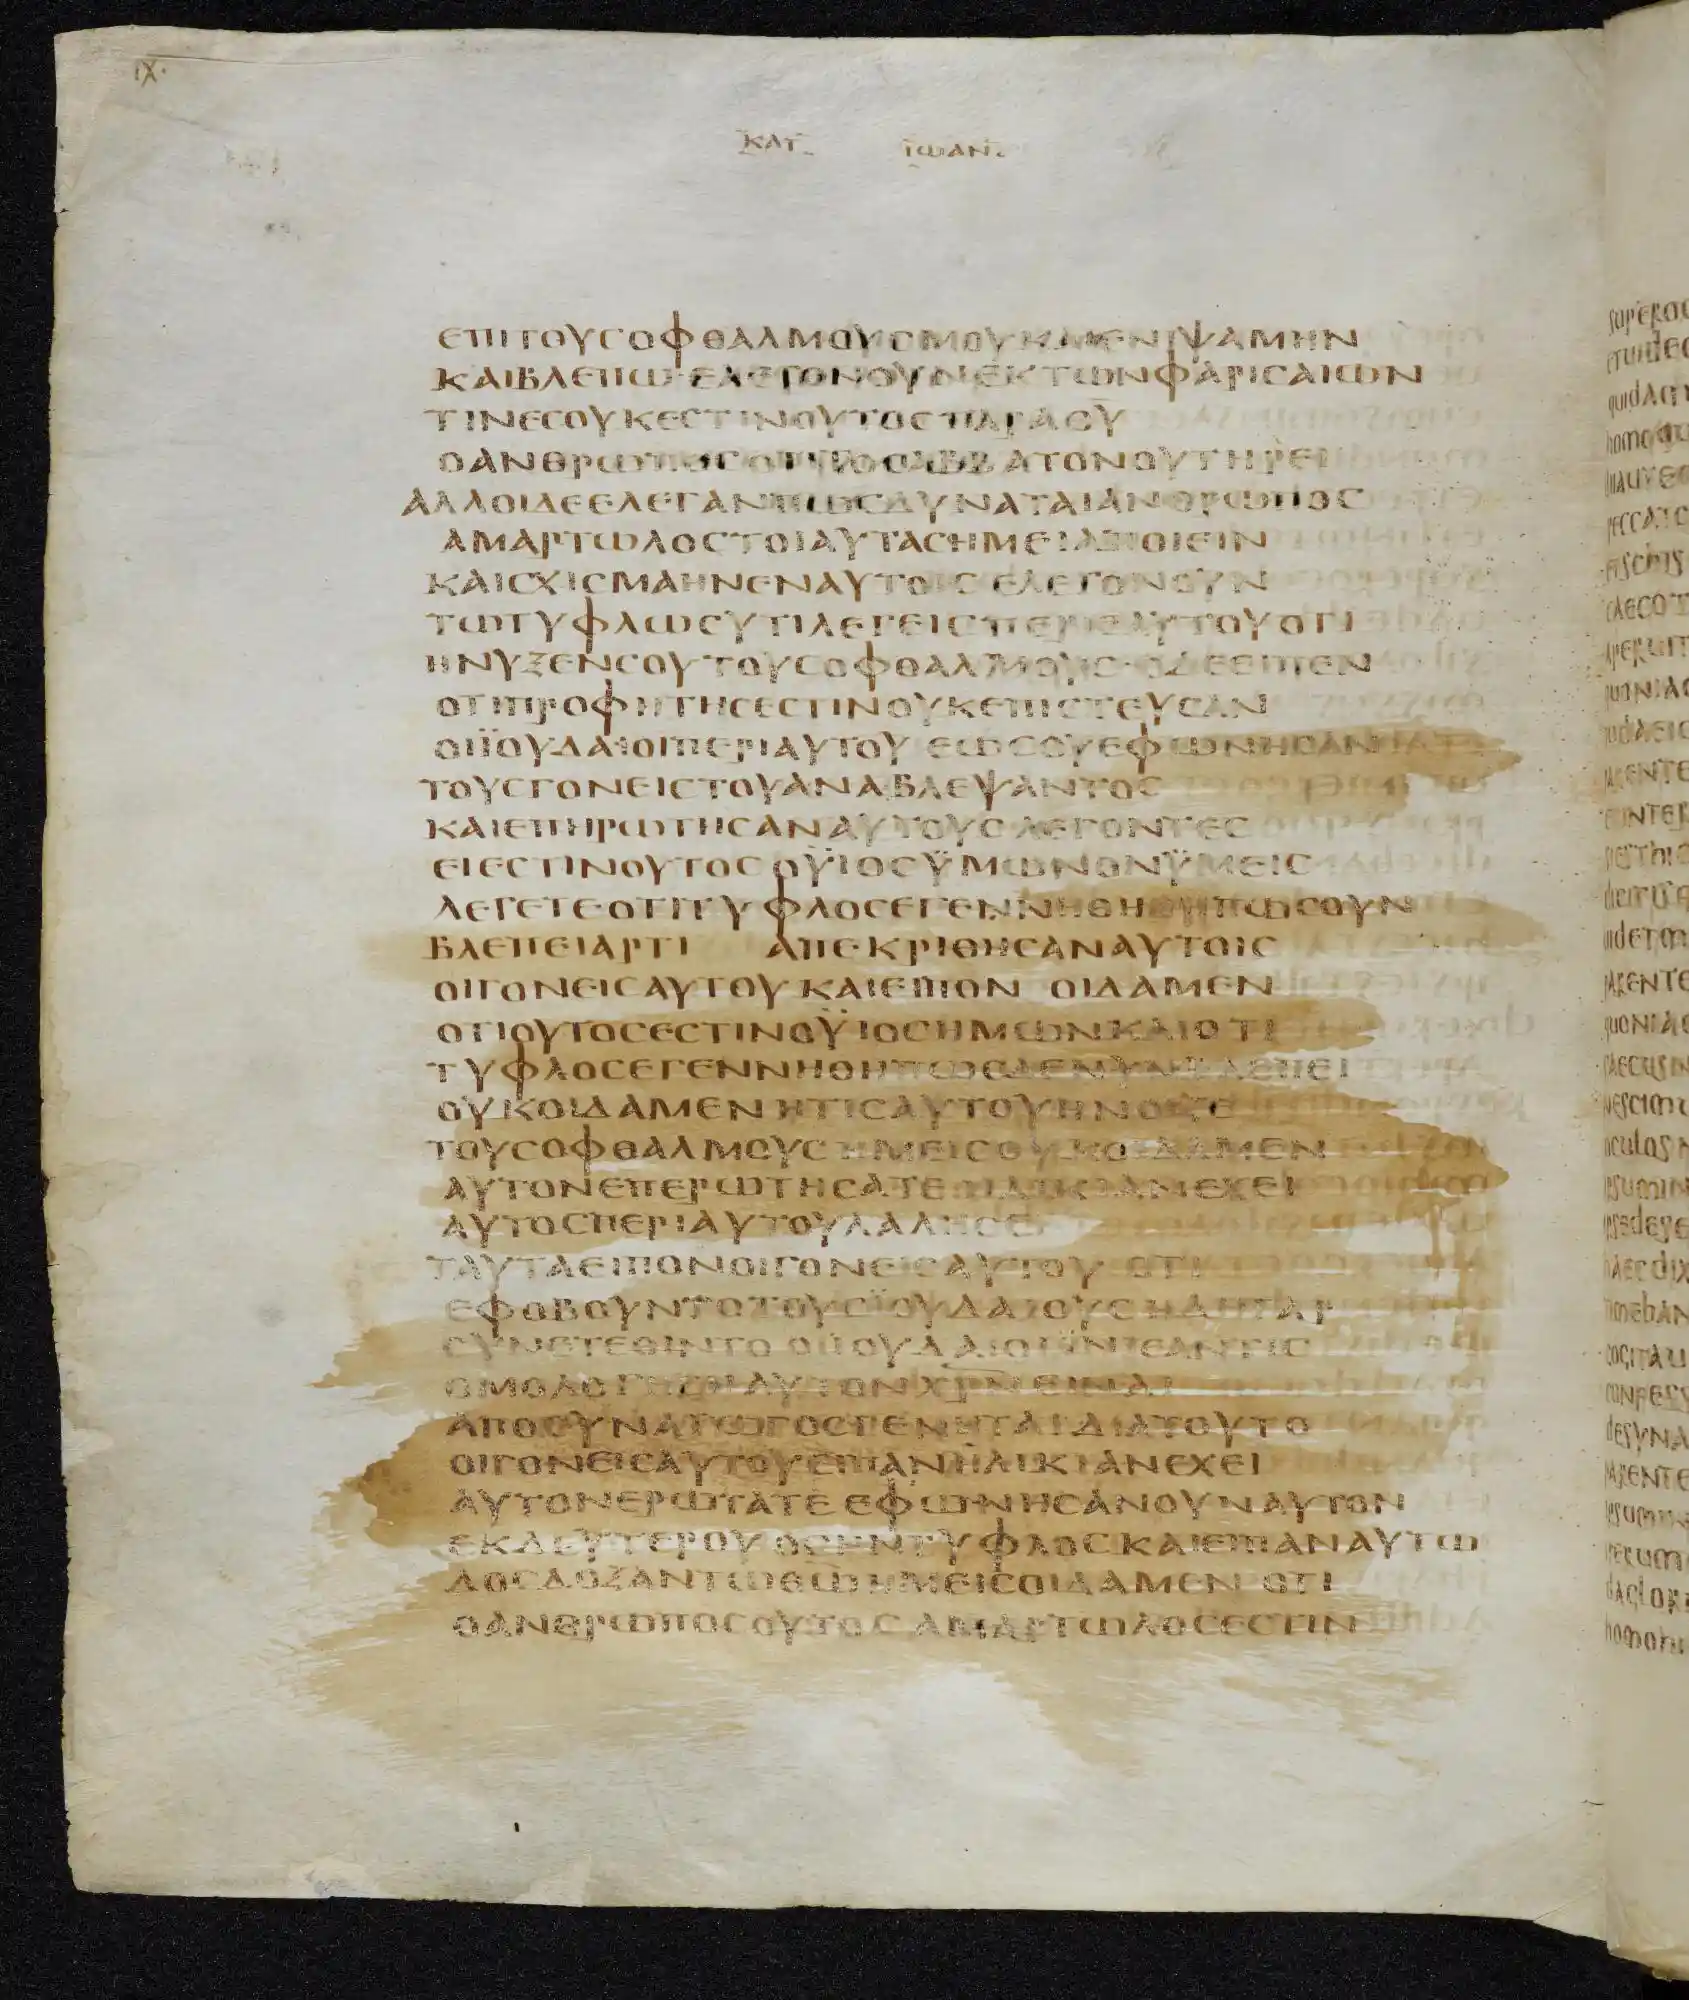 IX·
ΚΑΤ ΙΩΑΝ
ΕΠΙΤΟΥΣΟΦΘΑΛΜΟΥΣΜΟΥΚΑΙΕΝΙΨΑΜΗΝ
ΚΑΙΒΛΕΠΩ·ΕΛΕΓΟΝΟΥΝΕΚΤΩΝΦΑΡΙΣΑΙΩΝ
ΤΙΝΕΣΟΥΚΕΣΤΙΝΟΥΤΟΣΠΑΡΑΘΥ
ΟΑΝΘΡΩΠΟΣΟΤΙΤΟΣΑΒΒΑΤΟΝΟΥΤΗΡΕΙ
ΑΛΛΟΙΔΕΕΛΕΓΑΝΠΩΣΔΥΝΑΤΑΙΑΝΘΡΩΠΟΣ
ΑΜΑΡΤΩΛΟΣΤΟΙΑΥΤΑΣΗΜΕΙΑΠΟΙΕΙΝ
ΚΑΙΣΧΙΣΜΑΗΝΕΝΑΥΤΟΙΣ ΕΛΕΓΟΝΟΥΝ
ΤΩΤΥΦΛΩΣΥΤΙΛΕΓΕΙΣΠΕΡΙΕΑΥΤΟΥΟΤΙ
ΗΝΥΞΕΝΣΟΥΤΟΥΣΟΦΘΑΛΜΟΥΣ·ΟΔΕΕΙΠΕΝ
ΟΤΙΠΡΟΦΗΤΗΣΕΣΤΙΝΟΥΚΕΠΙΣΤΕΥΣΑΝ
ΟΙΪΟΥΔΑΙΟΙΠΕΡΙΑΥΤΟΥ ΕΩΣΟΥΕΦΩΝΗΣΑΝ
ΤΟΥΣΓΟΝΕΙΣΤΟΥΑΝΑΒΛΕΨΑΝΤΟΣ
ΚΑΙΕΠΗΡΩΤΗΣΑΝΑΥΤΟΥΣ ΛΕΓΟΝΤΕΣ
ΕΙΕΣΤΙΝΟΥΤΟΣΟΫΙΟΣΫΜΩΝΟΝΫΜΕΙΣ
ΛΕΓΕΤΕΟΤΙΤΥΦΛΟΣΕΓΕΝΝΗΘΗ ΠΩΣΟΥΝ
ΒΛΕΠΕΙΑΡΤΙ ΑΠΕΚΡΙΘΗΣΑΝΑΥΤΟΙΣ
ΟΙΓΟΝΕΙΣΑΥΤΟΥΚΑΙΕΙΠΟΝ ΟΙΔΑΜΕΝ
ΟΤΙΟΥΤΟΣΕΣΤΙΝΟΫΙΟΣΗΜΩΝΚΑΙΟΤΙ
ΤΥΦΛΟΣΕΓΕΝΝΗΘΗΠΩΣΔΕΝΥΝΒΛΕΠΕΙ
ΟΥΚΟΙΔΑΜΕΝΗΤΙΣΑΥΤΟΥΗΝΟΙΞΕ
ΤΟΥΣΟΦΘΑΛΜΟΥΣΗΜΕΙΣΟΥΚΟΙΔΑΜΕΝ
ΑΥΤΟΝΕΠΕΡΩΤΗΣΑΤΕΗΛΙΚΙΑΝΕΧΕΙ
ΑΥΤΟΣΠΕΡΙΑΥΤΟΥΛΑΛΗΣΕΙ
ΤΑΥΤΑΕΙΠΟΝΟΙΓΟΝΕΙΣΑΥΤΟΥ ΟΤΙ
ΕΦΟΒΟΥΝΤΟΤΟΥΣΪΟΥΔΑΙΟΥΣΗΔΗΓΑΡ
ΣΥΝΕΤΕΘΙΝΤΟ ΟΙΪΟΥΔΑΙΟΙΪΝΑΕΑΝΤΙΣ
ΟΜΟΛΟΓΗΣΗΑΥΤΟΝΧΡΝΕΙΝΑΙ
ΑΠΟΣΥΝΑΓΩΓΟΣΓΕΝΗΤΑΙΔΙΑΤΟΥΤΟ
ΟΙΓΟΝΕΙΣΑΥΤΟΥΕΙΠΑΝΗΛΙΚΙΑΝΕΧΕΙ
ΑΥΤΟΝΕΡΩΤΑΤΕ ΕΦΩΝΗΣΑΝΟΥΝΑΥΤΟΝ
ΕΚΔΕΥΤΕΡΟΥ ΟΣΗΝΤΥΦΛΟΣΚΑΙΕΙΠΑΝΑΥΤΩ
ΔΟΣΔΟΞΑΝΤΩΘΩΗΜΕΙΣΟΙΔΑΜΕΝ ΟΤΙ
ΟΑΝΘΡΩΠΟΣΟΥΤΟΣ ΑΜΑΡΤΩΛΟΣΕΣΤΙΝ